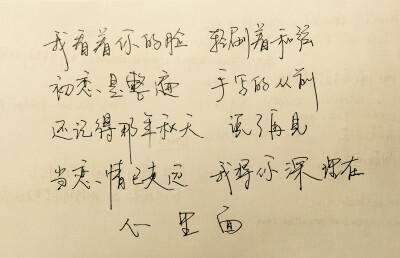 我看着你的脸 轻刷着和弦
初恋是整遍 手写的从前
还记得那年秋天 说了再见
当恋情已走远 我将你深埋在
心里面